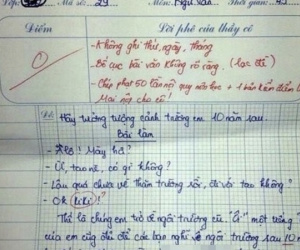 Lớp: Mã số: 29 Môn: Ngữ văn Thời gian: 45
Điểm
Lời phê của thầy cô
1
- Không ghi thứ, ngày, tháng
- Bố cục bài văn không rõ ràng. (lạc đề)
- Chép phạt 50 lần nội quy + 1 bản kiểm điểm
Mai nộp cho cô!
Đề: Hãy tưởng tượng cảnh trường em 10 năm sau.
Bài làm
- Alo! Mày hả?
- Ừ, tao nè, có gì không?
- Lâu quá chưa về thăm trường rồi, đi với tao không?
- Ok
Thế là chúng em trở về ngôi trường cũ. "Ồ" một tiếng
của em cũng đủ để các bạn nghĩ về ngôi trường sau 10